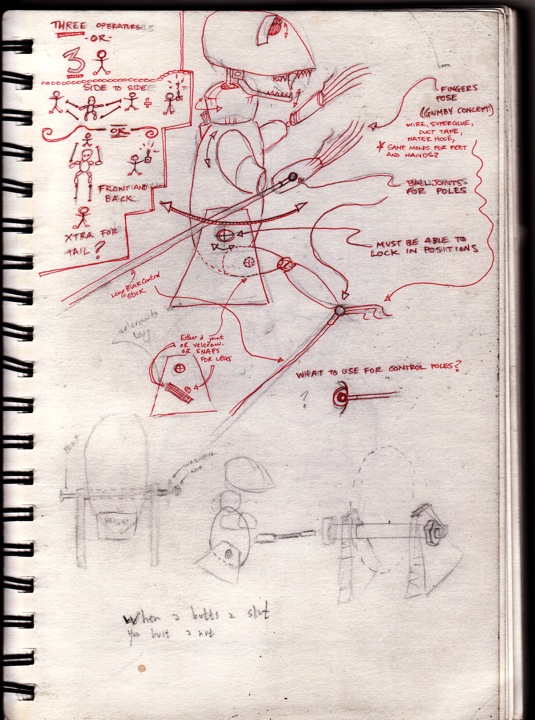 THREE OPERATORS
-OR-
3
SIDE TO SIDE
+
OR
FRONT AND
BACK
XTRA FOR
TAIL?
FINGERS
POSE
(GUMBY CONCEPT)
WIRE, SUPERGLUE,
DUCT TAPE,
WATER HOSE,
* SAME MOLDS FOR FEET
AND HANDS?
BALL JOINTS
FOR POLES
MUST BE ABLE TO
LOCK IN POSITIONS
LONG BLACK CONTROL
STICK
Either a joint
OR VELCROW.
OR SNAPS
FOR LEGS
WHAT TO USE FOR CONTROL POLES?
?
BOLT
WASHER
NUT
WEIGHT
When a butts a slut
You bust a nut